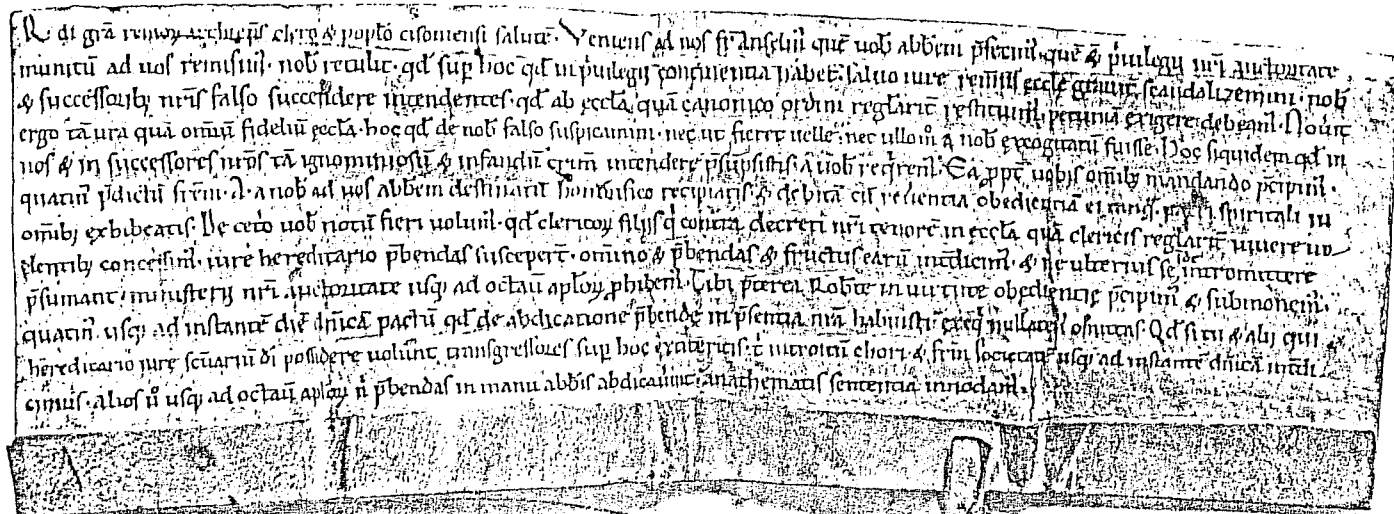 R. di gra remoꝝ archiepſ clero & poplo ciſonienſi ſalutē. Veniens ad nos fr̄ Anſelm̄ quē uob̄ abbēm p̄fecim̄. quē & p̄uilegij nr̄i auctoritate
munitū ad uos remiſim̄. nob̄ retulit. qd̄ ſup̄ hoc qd̄ in p̄uilegij continentia habet. ſaluo iure remſis eccl̄e grauit̄ ſcandalizemini. nob̄
& ſucceſſorib; nr̄is falſo ſuccenſere intendentes. qd̄ ab eccl̄a quā canonico ordini reglarit̄ reſtituim̄. pecuniā exigere debeam̄. Nouit
ergo tā ura quā om̄iū fideliū eccl̄a. hoc qd̄ de nob̄ falſo ſuſpicamini. nec ut fieret uelle. nec ullom̊ a nob̄ excogitatū fuiſſe. Hoc ſiquidem qd̄ in
nos & in ſucceſſores nr̄os tā ignominioſū & infandū crim̄ intendere p̄ſūpſiſtis. a uob̄ reqrem̄. Ea ppt̄ uobis om̄ib; mandando p̄cipim̄.
quatin̄ p̄dictū frēm. A. a nob̄ ad uos abbēm deſtinatū honorifico recipiatis. & debitā cū reuerentia obedientiā ei tanq̄ patri ſpiritali in
om̄ib; exhibeatis. De cet̄o uob̄ notū fieri uolum̄. qd̄ clericoꝝ filijs q̄ contra decreti nr̄i tenorē in eccl̄a quā clericis reglarit̄ uiuere uo
lentib; conceſſim̄. iure hereditario p̄bendas ſuſcepert̄. om̄ino & p̄bendas & fructus earū int̄dicim̄. & ne ulterius ſe intromittere
p̄ſumant. miniſterij nr̄i auctoritate uſq; ad octau̅ aploꝝ p̄hibem̄. Tibi p̄terea Robte in uirtute obedientie p̄cipim̄ & ſubmonem̄.
quatin̄ uſq; ad inſtantē diē dn̄icā pactū qd̄ de abdicatione p̄bende in p̄ſentia nr̄a habuiſti. exeq̄ nullaten̄ omittas. Qd̄ ſi tu & alij qui
hereditario iure ſc̄uariū di poſſidere uolunt. tranſgreſſores ſup̄ hoc extiteritis. t̄ introitū chori & fr̄m ſocietatē uſq; ad inſtantē dn̄icā int̄di
cimus. alios ū uſq; ad octau̅ aploꝝ n̄ p̄bendas in manu abb̄is abdicauint. anathematis ſententia innodam̄.